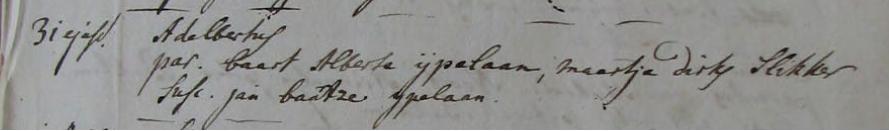 31 ejusd. Adelbertus
par. baart Alberts ijpelaan, maartja dirks Slikker
Susc. jan baatze ypelaan.